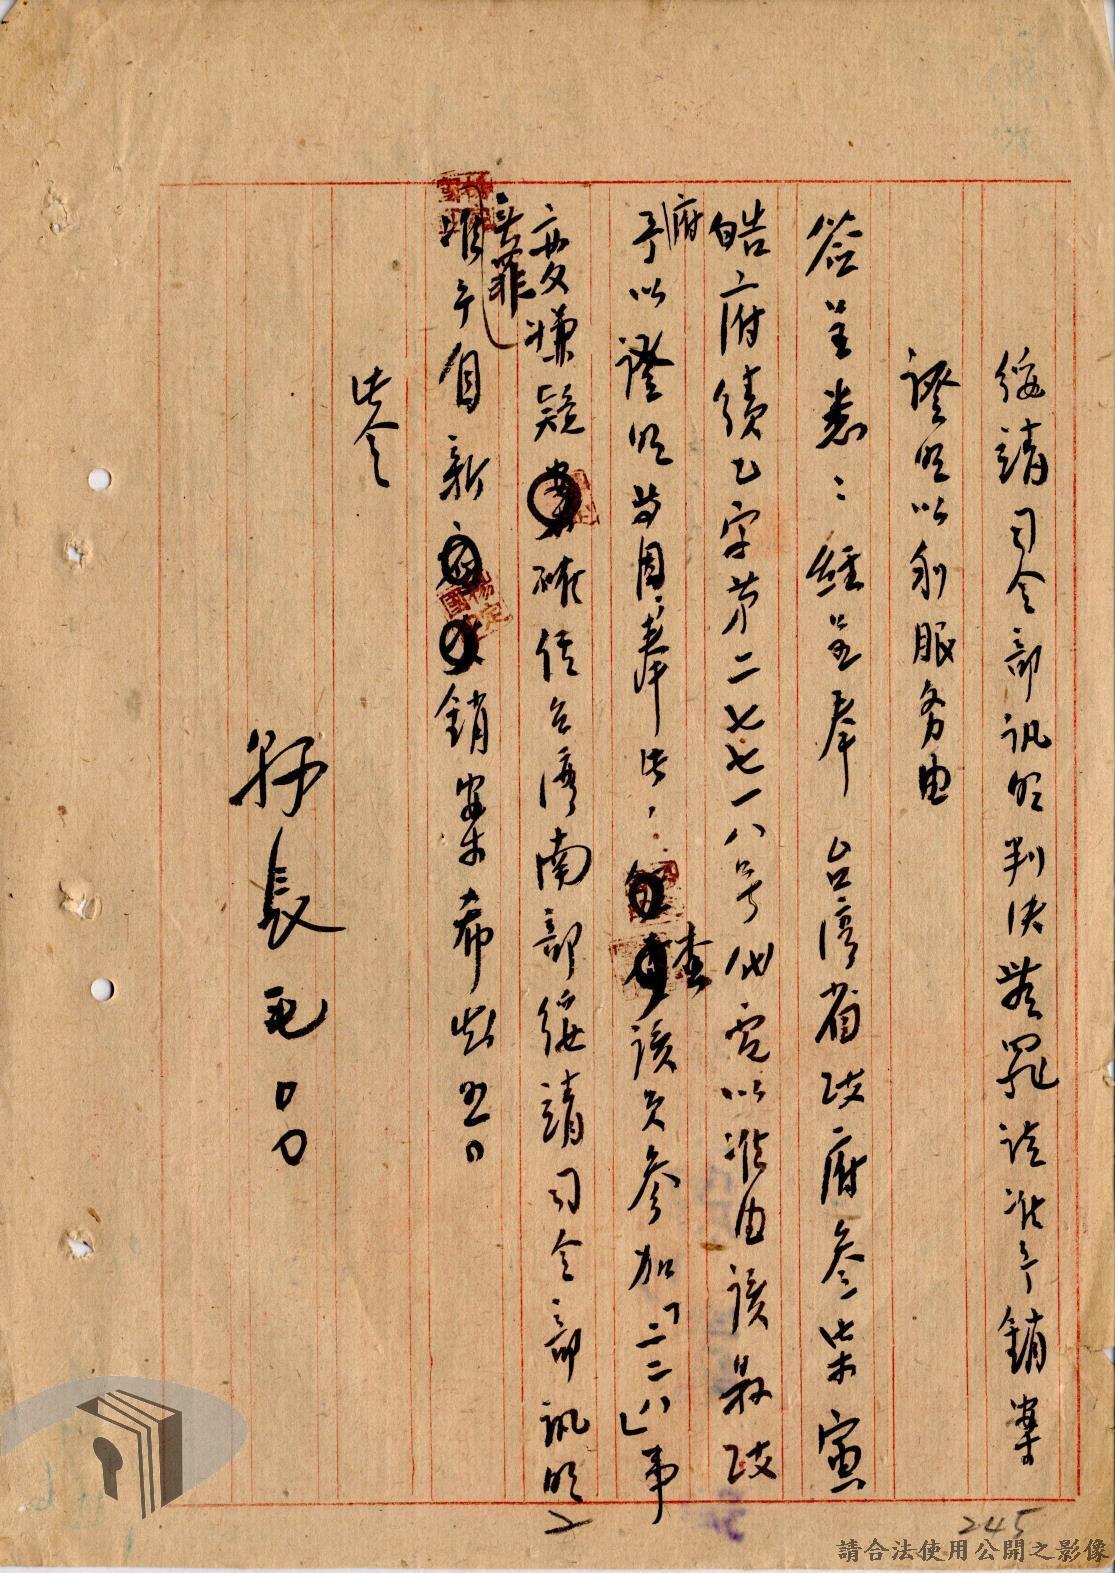 綏靖司令部訊明判決無罪請准予銷案
證明以利服务由
簽呈悉：經呈奉 台湾省政府叁柒寅
皓府績乙字第二七七一八号代电以准由該县政府
予以證明等因奉此，查該員参加「二二八」事
变嫌疑確經台湾南部綏靖司令部訊明無罪
准予自新銷案希知照
此令
縣長毛○○
楊定國
245
請合法使用公開之影像